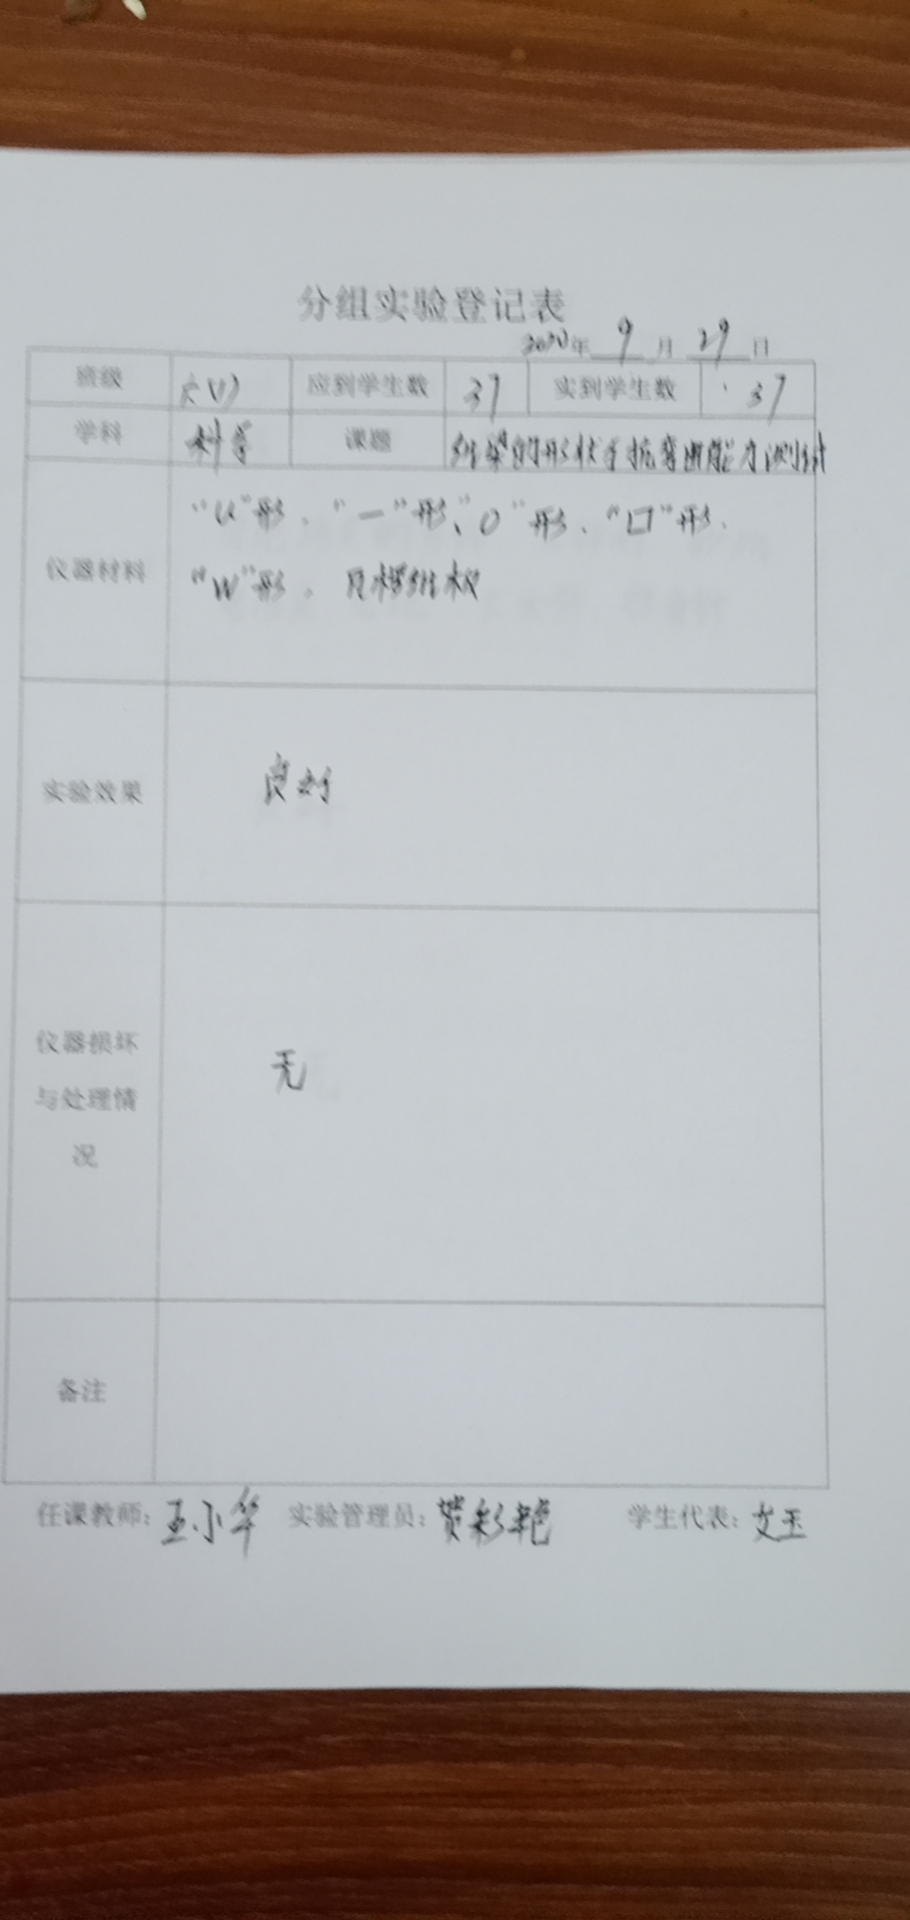 分组实验登记表
2020年 9 月 29 日
班级 六(1) 应到学生数 37 实到学生数 37
学科 科学 课题 纸梁的形状与抗弯曲能力测试
仪器材料 "U"形、"一"形、"O"形、"口"形、
"W"形、瓦楞纸板
实验效果 良好
仪器损坏
与处理情
况
无
备注
任课教师: 王小华 实验管理员: 贺彩艳 学生代表: 文玉